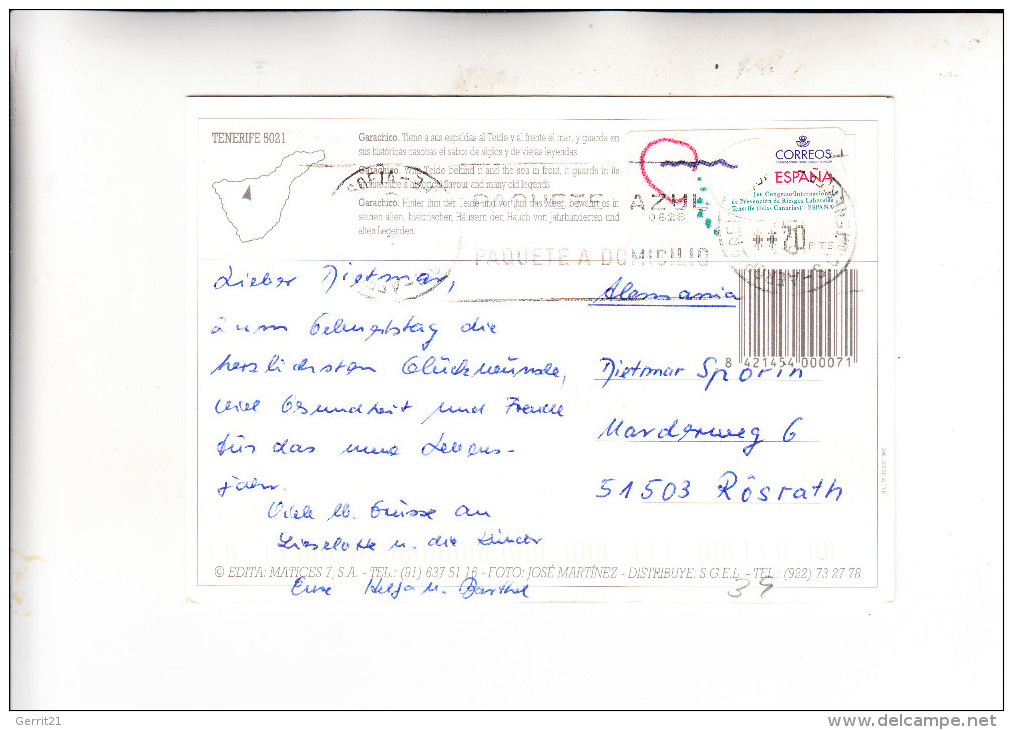 TENERIFE 5021
Garachico. Tiene a sus espaldas al Teide y al frente el mar, y guarda en
sus históricas casonas el sabor de siglos y de viejas leyendas.
Garachico. With Teide behind it and the sea in front, it guards in its
flavour and many old legends.
Garachico. Hinter ihm der Teide und vor ihm das Meer, bewahrt es in
seinen alten, historischen Häusern den Hauch von Jahrhunderten und
alten Legenden.
AZUL
0628
PAQUETE A DOMICILIO
CORREOS
ESPAÑA
1er Congreso Internacional
de Prevención de Riesgos Laborales
Tenerife (Islas Canarias) - ESPAÑA
**20
PTS
Lieber Dietmar,
zum Geburtstag die
herzlichsten Glückwünsche,
viel Gesundheit und Freude
für das neue Lebens-
jahr.
Viele lb. Grüsse an
Lieselotte u. die Kinder
Eure Helga u. Barthel
Alemania
8 421454 000071
Dietmar Spörin
Marderweg 6
51503 Rösrath
© EDITA: MATICES 7, S.A. - TEL.: (91) 637 51 16 - FOTO: JOSÉ MARTÍNEZ - DISTRIBUYE: S.G.E.L. - TEL.: (922) 73 27 78
39
Gerrit21
www.delcampe.net